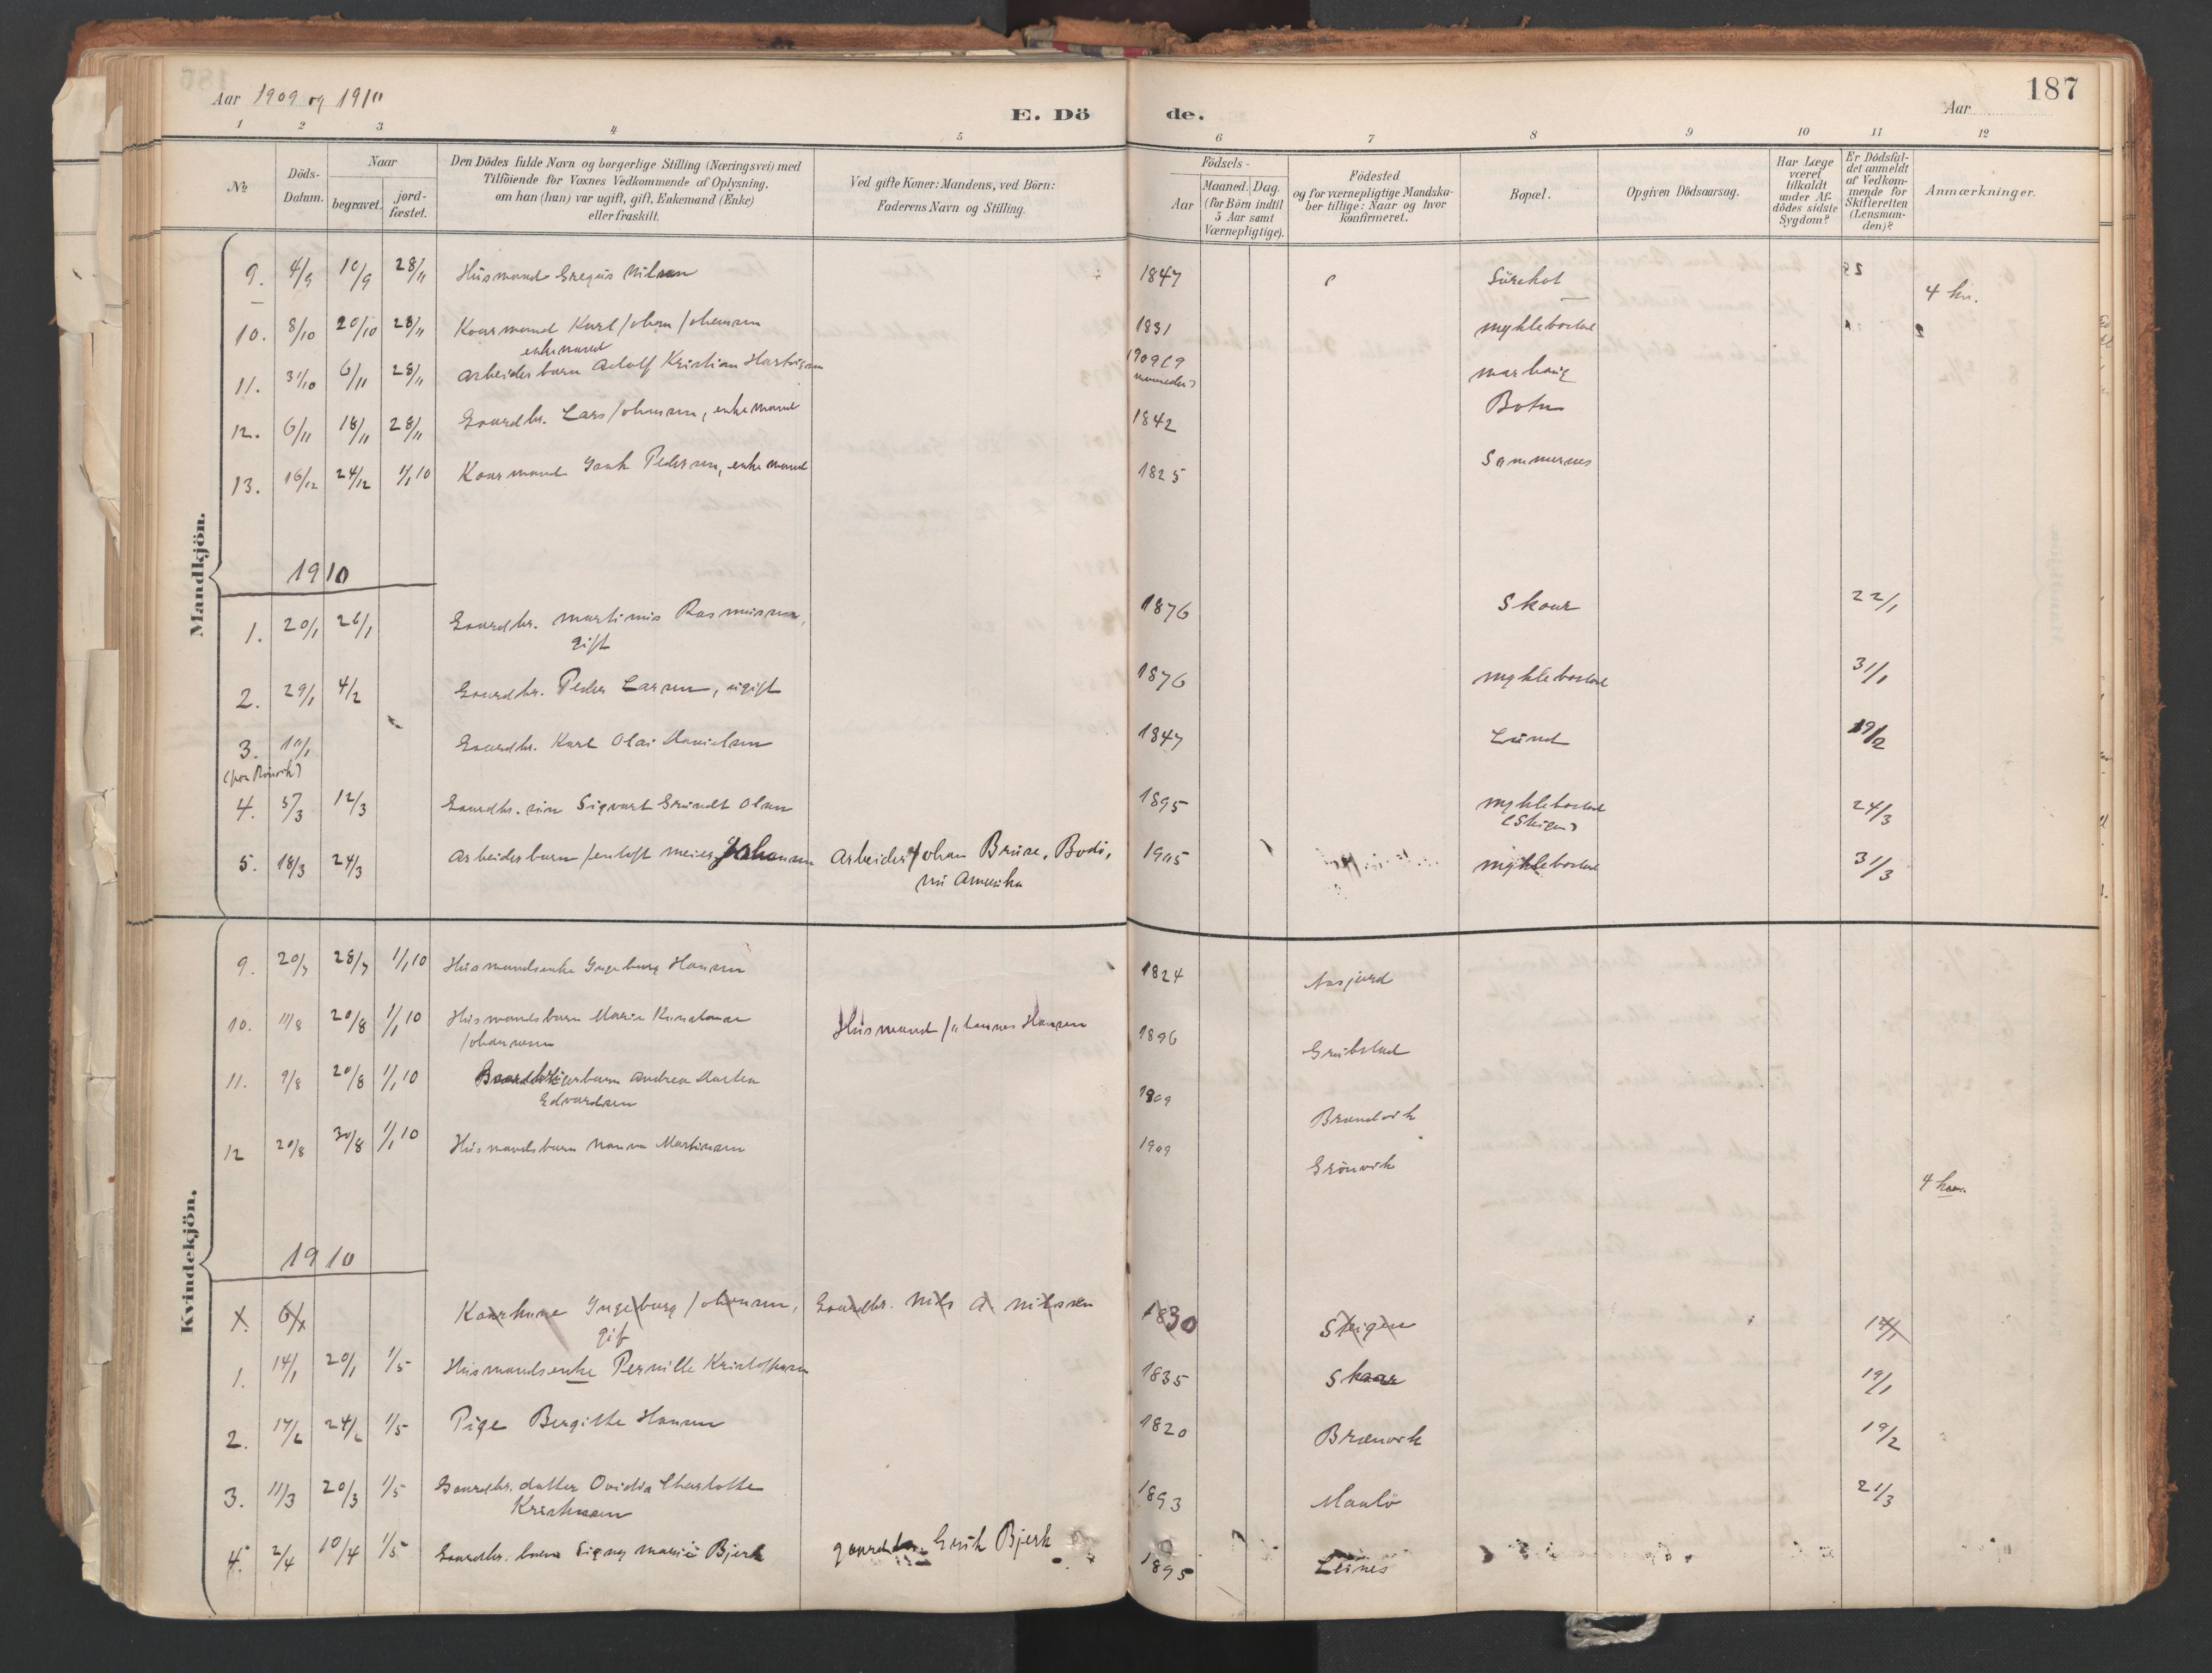 Aar 1909 og 1910
E. Dö
de.
Aar
187
1 2 3 4 5 6 7 8 9 10 11 12
No
Döds-
Datum.
Naar
begravet.
jord-
fæstet.
Den Dödes fulde Navn og borgerlige Stilling (Næringsvei) med
Tilföiende for Voxnes Vedkommende af Oplysning,
om han (hun) var ugift, gift, Enkemand (Enke)
eller fraskilt.
Ved gifte Koner: Mandens, ved Börn:
Faderens Navn og Stilling.
Födsels-
Aar
Maaned. Dag.
(for Börn indtil
5 Aar samt
Værnepligtige).
Födested
og for værnepligtige Mandska-
ber tillige: Naar og hvor
konfirmeret.
Bopæl.
Opgiven Dödsaarsag.
Har Læge
været
tilkaldt
under Af-
dödes sidste
Sygdom?
Er Dödsfal-
det anmeldt
af Vedkom-
mende for
Skifteretten
(Lensman-
den)?
Anmærkninger.
Mandkjön.
9. 4/9 10/9 28/11 Husmand Gregus Nilsen 1847
4 kv.
10. 8/10 20/10 28/11 Kaarmand Karl Johan Johansen 1831 Myklebostad
enkemand
11. 31/10 6/11 28/11 Arbeidersbarn Adolf Kristian Hartvigsen 1909 (9 Marhaug
maaneder)
12. 6/11 18/11 28/11 Gaardbr. Lars Johansen, enkemand 1842 Botn
13. 16/12 24/12 1/1 10 Kaarmand Isak Pedersen, enkemand 1825 Sommernes
1910
1. 20/1 26/1 Gaardbr. Martinus Rasmussen, 1876 Skaar 22/1
gift
2. 29/1 4/2 Gaardbr. Peder Larsen, ugift 1876 Myklebostad 31/1
3. 10/1 Gaardbr. Karl Olai Danielsen 1847 Lund 19/2
4. 5/3 12/3 Gaardbr. sön Sigvart Grundt Olsen 1895 Myklebostad 24/3
(Steigen)
5. 18/3 24/3 Arbeidersbarn Jentoft Meier Johansen Arbeider Johan Bruse, Bodö, 1905 Myklebostad 31/3
nu Amerika
Kvindekjön.
9. 20/7 28/7 1/1 10 Husmandsenke Ingeborg Hansen 1824 Aasjord
10. 11/8 20/8 1/1 10 Husmandsbarn Marie Konstanse Husmand Johannes Hansen 1896 Grubstad
Johannesen
11. 9/8 20/8 1/1 10 Andrea Marlea 1909 Brandvik
Edvardsen
12 20/8 30/8 1/1 10 Husmandsbarn Nanna Martinsen 1909 Grönvik
4 kv.
1910
X. 6/1 Kaarkone Ingeborg Johansen, Gaardbr. Nils A Nilssen 1830 Steigen 12/1
gift
1. 14/1 20/1 1/5 Husmandsenke Pernille Kristoffersen 1835 Skaar 19/1
2. 17/2 24/2 1/5 Pige Bergitte Hansen 1820 Brænvik 19/2
3. 11/3 20/3 1/5 Gaardbr. datter Ovidia Charlotte 1893 Maalö 21/3
Kristiansen
4. 2/4 10/4 1/5 Gaardbr. barn Signy Marie Bjerk gaardbr. Erik Bjerk 1895 Leines